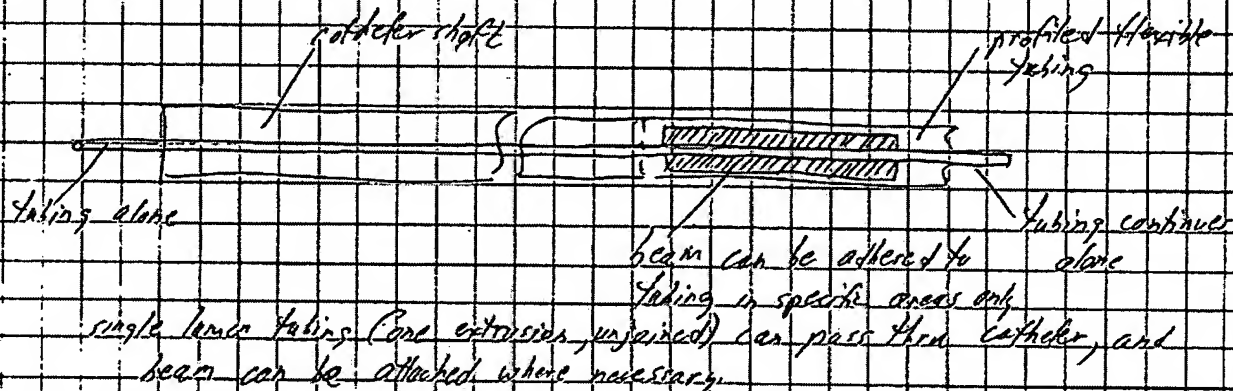 catheter shaft
profiled flexible
tubing
tubing alone
tubing continues
alone
beam can be adhered to
tubing in specific areas only
single lumen tubing (one extrusion, unjoined) can pass thru catheter, and
beam can be attached where necessary.